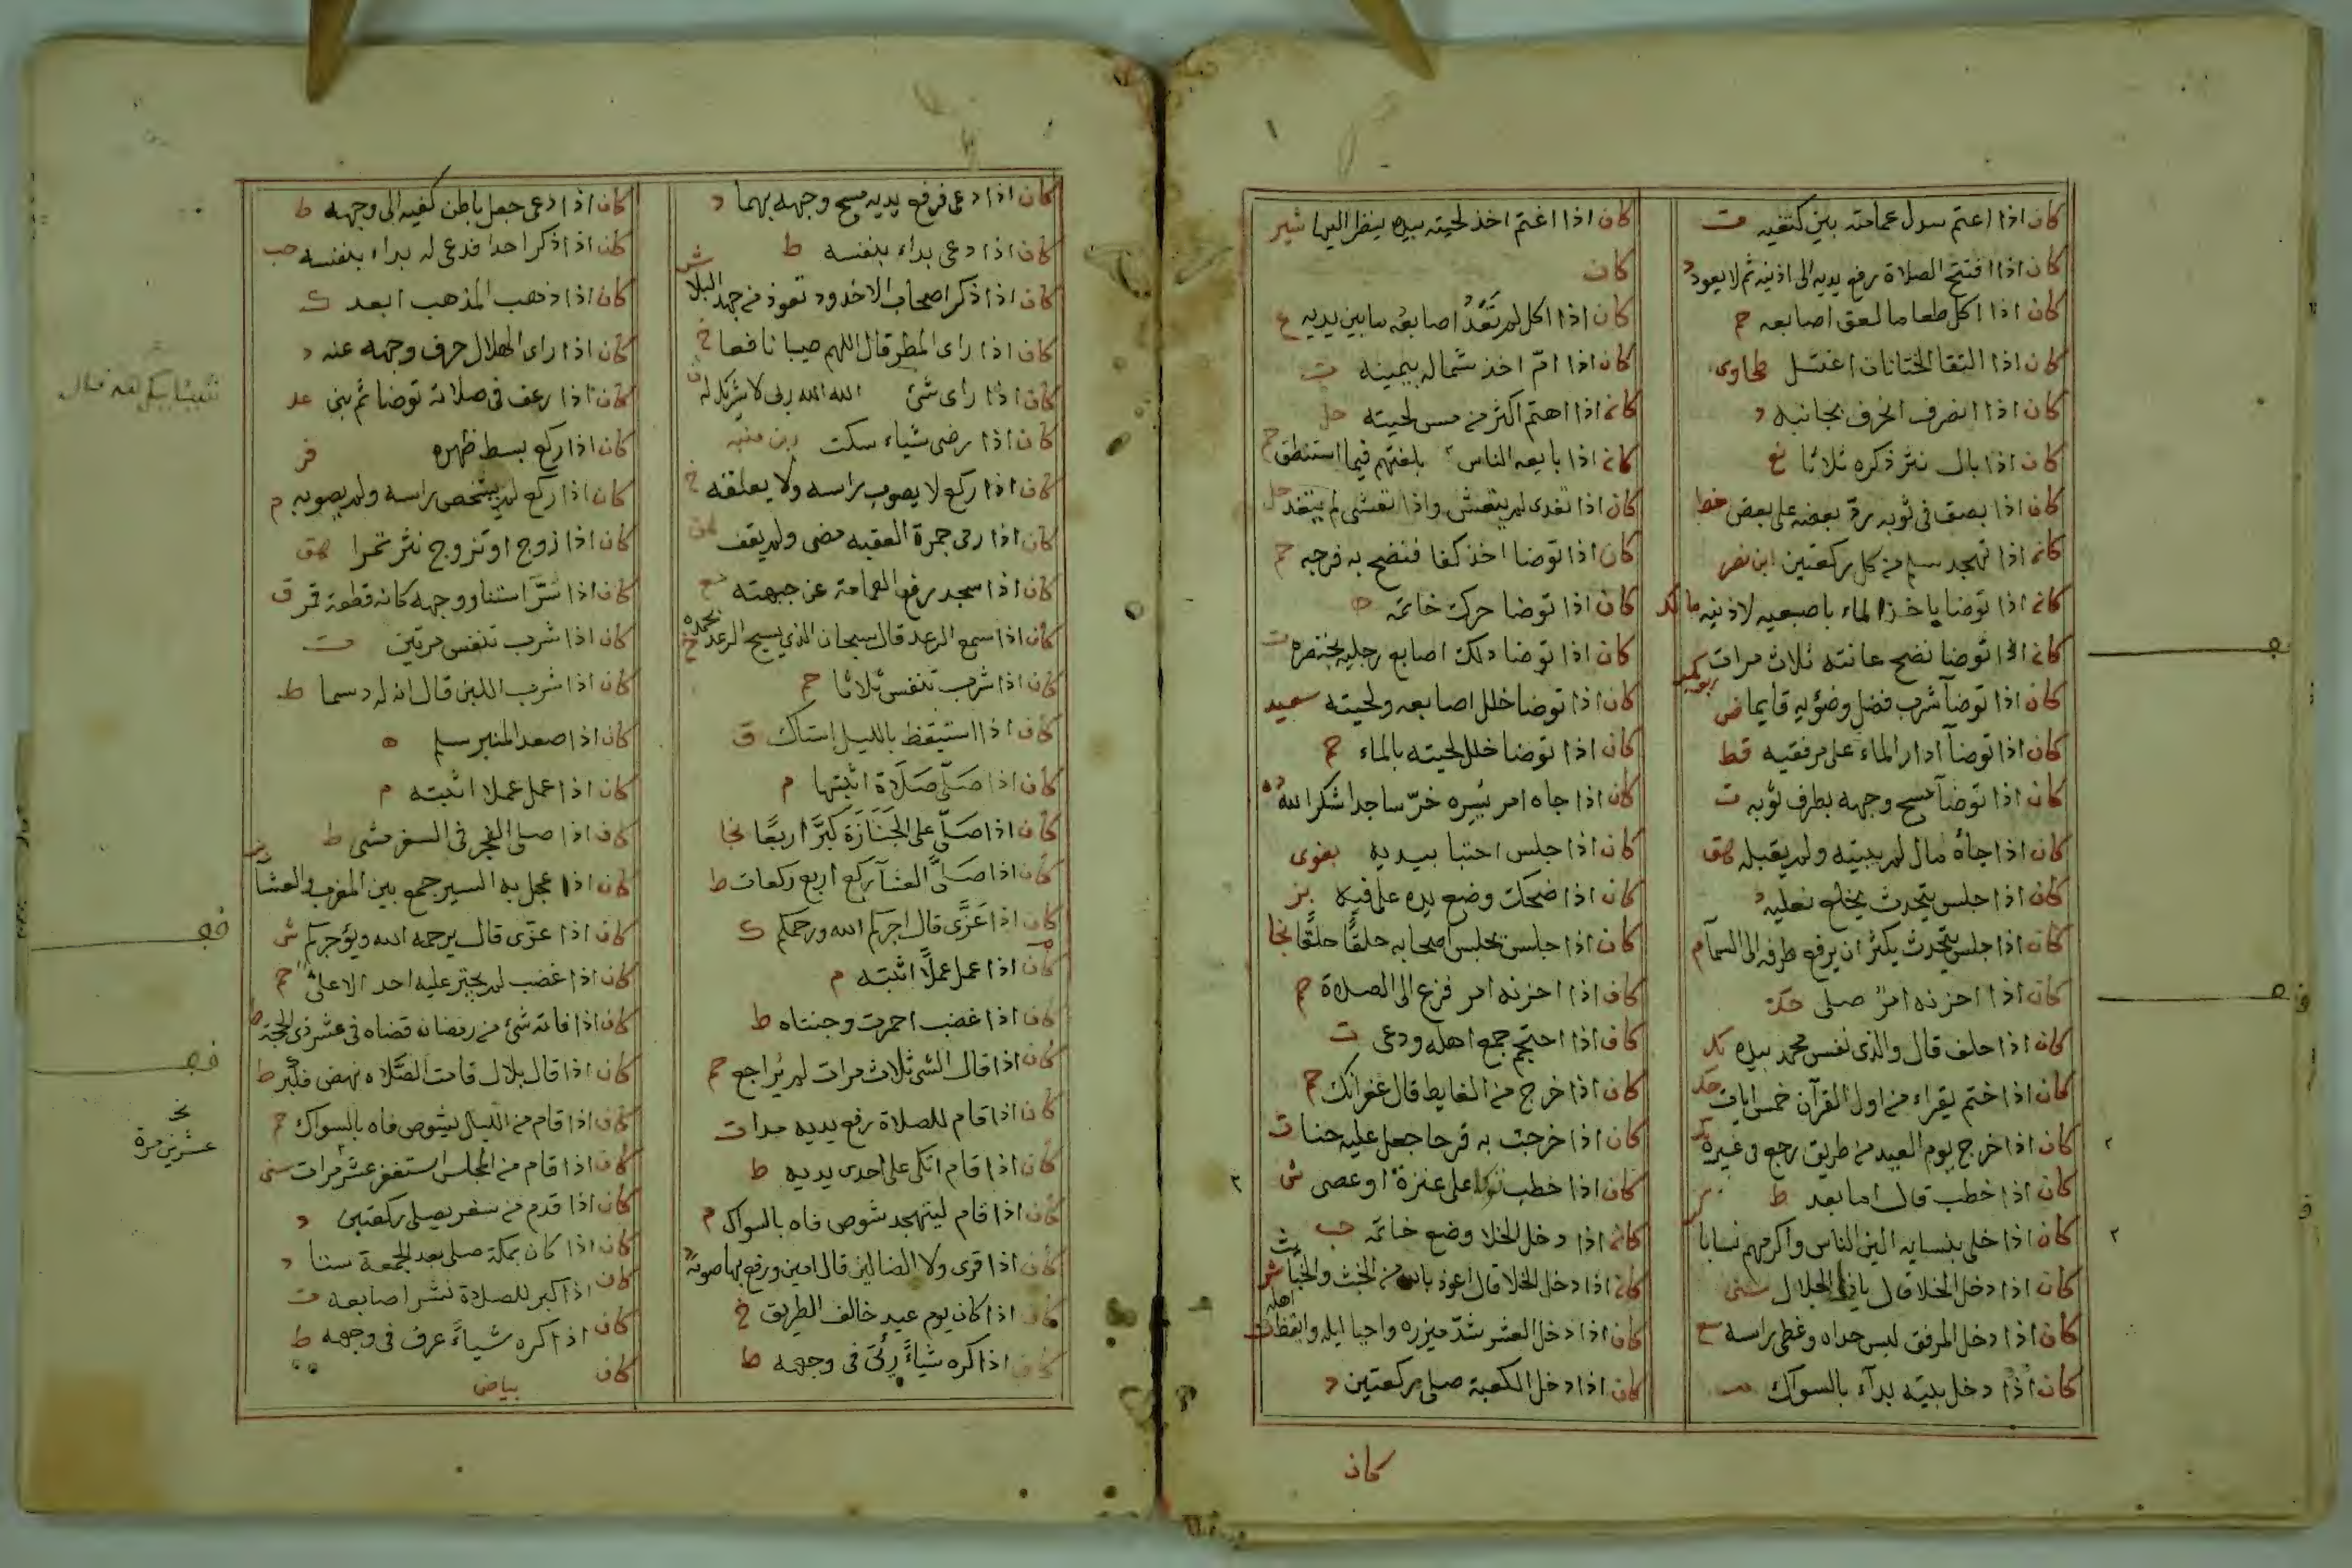 كان اذا اعتم سدل عمامته بين كتفيه ت
كان اذا افتتح الصلاة رفع يديه الى اذنيه ثم لا يعود د
كان اذا اكل طعاما لعق اصابعه حم
كان اذا التقا الختانان اغتسل طحاوى
كان اذا انصرف انحرف بجانبه د
كان اذا بال نتر ذكره ثلاثا
كان اذا بصق فى ثوبه ردّ بعضه على بعض خط
كان اذا تهجد سلم من كل ركعتين ابن نصر
كان اذا توضا ياخذ الماء باصبعيه لاذنيه مالك
كان اذا توضا نضح عانته ثلاث مرات
كان اذا توضآ شرب فضل وضؤيه قايما ض
كان اذا توضآ ادار الماء على مرفقيه قط
كان اذا توضآ مسح وجهه بطرف ثوبه ت
كان اذا جاه مال لم يبيته ولم يقيله هق
كان اذا جلس يتحدث يخلع نعليه
كان اذا جلس يتحدث يكثر ان يرفع طرفه الى السمآ م
كان اذا احزنه امرٌ صلى حد
كان اذا حلف قال والذى نفس محمد بيده
كان اذا ختم يقراء من اول القرآن خمس ايات
كان اذا خرج يوم العيد من طريق رجع فى غيره
كان اذا خطب قال اما بعد ط
كان اذا خلى بنسايه الين الناس واكرمهم نسابا
كان اذا دخل الخلا قال ياذا الجلال سنى
كان اذا دخل المرفق لبس حداه وغطى راسه
كان اذا دخل بيته بدآء بالسواك
كان اذا اغتم اخذ لحيته بيده ينظر اليها شير
كان
كان اذا اكل لم تَعْدُ اصابعُه ما بين يديه
كان اذا امّ اخذ شماله بيمينه ت
كان اذا اهتم اكثر من مس لحيته حل
كان اذا بايعه الناس يلقنهم فيما استنطق حم
كان اذا تغدى لم يتعش واذا تعشى لم يتغد حل
كان اذا توضا اخذ كفا فنضح به فرجه حم
كان اذا توضا حرك خاتمه ه
كان اذا توضا دلك اصابع رجليه بخنصره ت
كان اذا توضا خلل اصابعه ولحيته سعيد
كان اذا توضا خلل لحيته بالماء حم
كان اذا جاه امر يُسِره خرّ ساجدا شكرا لله
كان اذا جلس احتبا بيديه بغوى
كان اذا ضحك وضع يده على فيه
كان اذا جلس يجلس اصحابه حلقًا حلقًا
كان اذا احزنه امر فزع الى الصلاة حم
كان اذا احتجم جمع اهله ودعى ت
كان اذا خرج من الغايط قال غفرانك حم
كان اذا خرجت به قرحا جعل عليه حنا ت
كان اذا خطب توكا على عنزة او عصى ش
كان اذا دخل الخلا وضع خاتمه حب
كان اذا دخل الخلا قال اعوذ بالله من الخبث والخبائث
كان اذا دخل العشر شدّ ميزره واحيا ليله وايقظ اهله
كان اذا دخل الكعبة صلى ركعتين د
كان
كان اذا دعى فرفع يديه مسح وجهه بهما د
كان اذا دعى بداء بنفسه ط
كان اذا ذكر اصحاب الاخدود تعوذ من جهد البلا ش
كان اذا راى المطر قال اللهم صيبا نافعا خ
كان اذا راى شئ الله الله ربى لا شريك له ن
كان اذا رضى شياء سكت ابن منبه
كان اذا ركع لا يصوب راسه ولا يعلقه
كان اذا رمى جمرة العقبه مضى ولم يقف
كان اذا سجد رفع العمامة عن جبهته
كان اذا سمع الرعد قال سبحان الذي يسبح الرعد بحمده
كان اذا شرب تنفس ثلاثا حم
كان اذا استيقظ بالليل استاك ق
كان اذا صَلّى صَلَاة اثبتها م
كان اذا صَلّى على الجَنَازَة كبّر اربعًا
كان اذا صَلّى العشآ ركع اربع ركعات ط
كان اذا عَزَّى قال اجركم الله ورحمكم ك
كان اذا عمل عملًا اثبته م
كان اذا غضب احمرت وجنتاه ط
كان اذا قال الشى ثلاث مرات لم يُراجع حم
كان اذا قام للصلاة رفع يديه مدا ت
كان اذا قام اتكى على احدى يديه ط
كان اذا قام ليتهجد شوص فاه بالسواك م
كان اذا قرى ولا الضالين قال امين ورفع بها صوته
كان اذا كان يوم عيد خالف الطريق خ
كان اذا كره شياءً رئى فى وجهه ط
كان اذا دعى جعل باطن كفيه الى وجهه ط
كان اذا ذكر احدا فدعى له بداء بنفسه حب
كان اذا ذهب المذهب ابعد ك
كان اذا راى الهلال حرف وجهه عنه د
كان اذا رعف فى صلاته توضا ثم بنى عد
كان اذا ركع بسط ظهره
كان اذا ركع لم يشخص راسه ولم يصوبه م
كان اذا زوج او تزوج نثر تمرا هق
كان اذا سُرَّ استنار وجهه كانه قطعة قمر ق
كان اذا شرب تنفس مرتين ت
كان اذا شرب اللبن قال ان له دسما ط
كان اذا صعد المنبر سلم ه
كان اذا عمل عملا اثبته م
كان اذا صلى الفجر فى السفر مشى ط
كان اذا عجل به السير جمع بين المغرب والعشآ
كان اذا عزى قال يرحمه الله ويؤجركم ش
كان اذا غضب لم يجتر عليه احد الا على حم
كان اذا فاته شئ من رمضان قضاه فى عشر ذى الحجة
كان اذا قال بلال قامت الصلاه نهض فكبر ط
كان اذا قام من الليل يشوص فاه بالسواك حم
كان اذا قام من المجلس استغفر عشر مرات سنى
كان اذا قدم من سفر يصلى ركعتين د
كان اذا كان بمكة صلى بعد الجمعة ستا د
كان اذا كبر للصلاة نشر اصابعه ت
كان اذا كره شياءً عرف فى وجهه ط
كان بياض
عشرين مرة